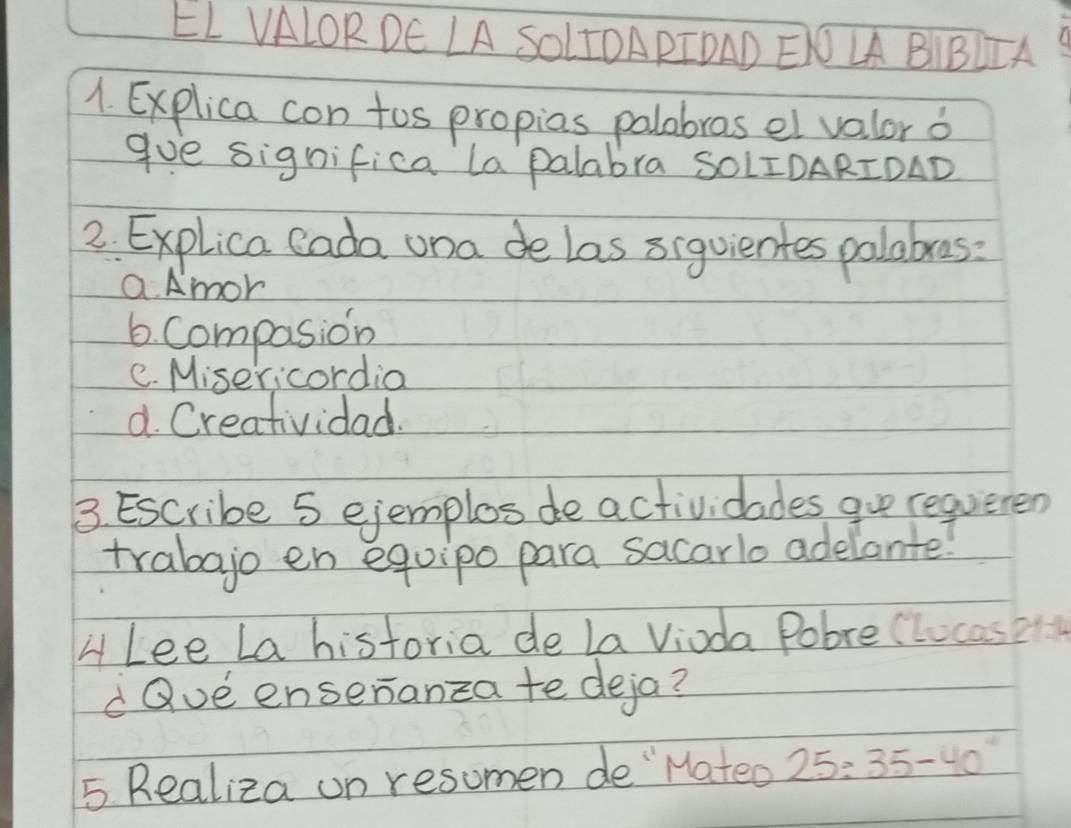 EL VALOR DE LA SOLIDARIDAD EN LA BIBLIA
1. Explica con tus propias palabras el valor ó
que significa la palabra SOLIDARIDAD
2. Explica cada una de las siguientes palabras:
a. Amor
b. Compasión
c. Misericordia
d. Creatividad.
3. Escribe 5 ejemplos de actividades que requieren
trabajo en equipo para sacarlo adelante.
4 Lee La historia de la Viuda Pobre (Lucas 21:
¿Qué enseñanza te deja?
5. Realiza un resumen de "Mateo 25:35-40"